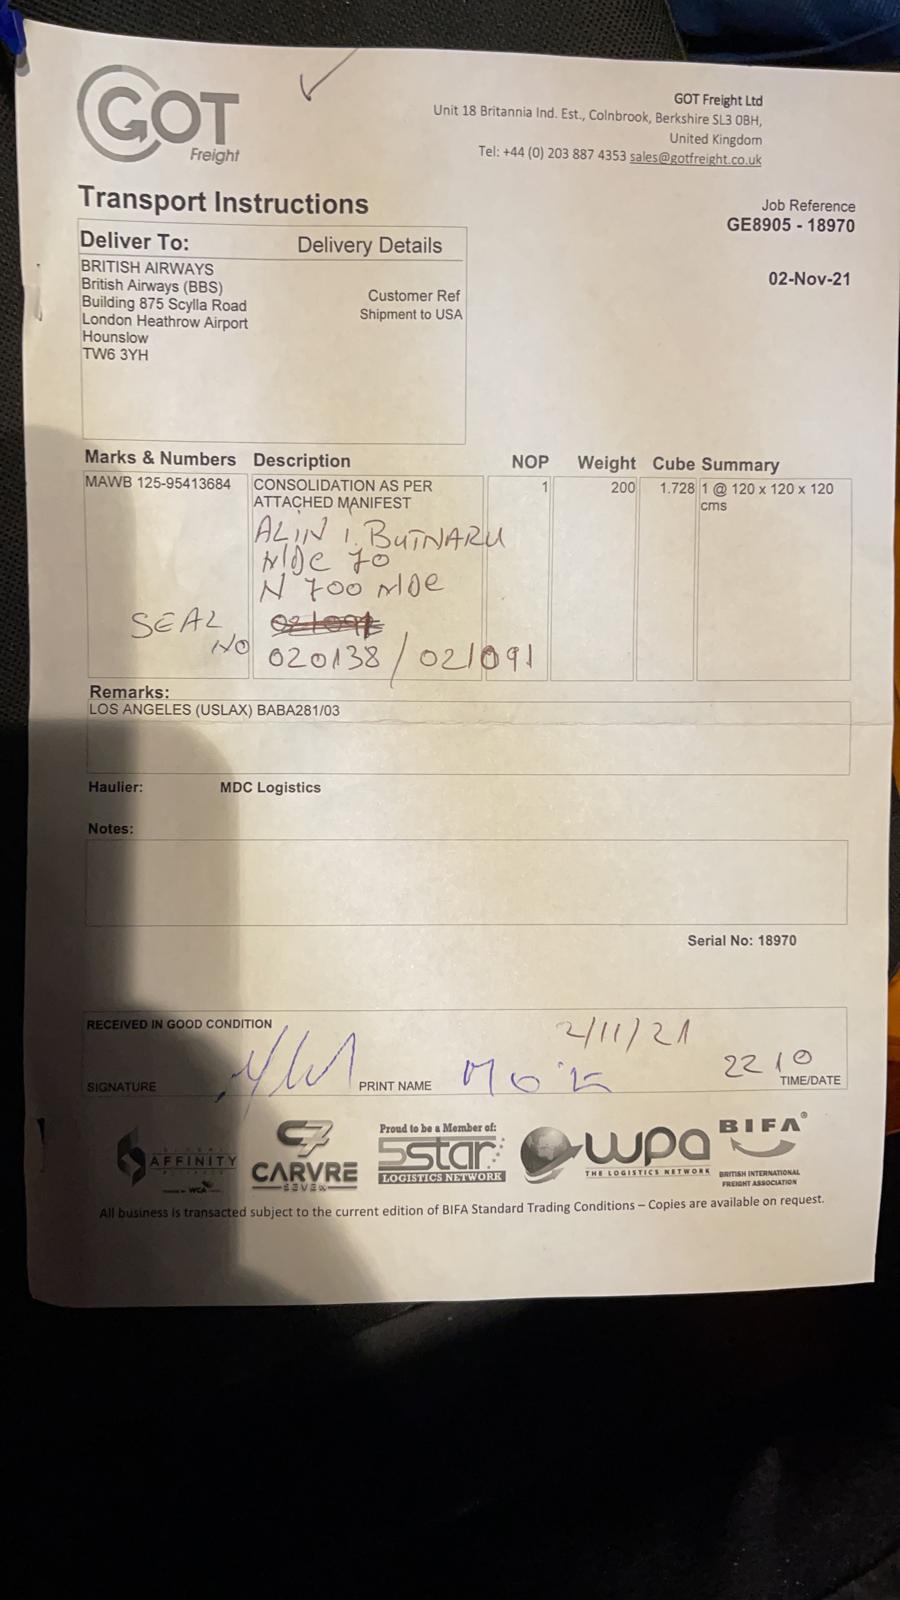 GOT
Freight
GOT Freight Ltd
Unit 18 Britannia Ind. Est., Colnbrook, Berkshire SL3 0BH,
United Kingdom
Tel: +44 (0) 203 887 4353 sales@gotfreight.co.uk
Transport Instructions
Job Reference
GE8905 - 18970
02-Nov-21
Deliver To: Delivery Details
BRITISH AIRWAYS
British Airways (BBS)
Building 875 Scylla Road
London Heathrow Airport
Hounslow
TW6 3YH
Customer Ref
Shipment to USA
Marks & Numbers Description NOP Weight Cube Summary
MAWB 125-95413684 CONSOLIDATION AS PER 1 200 1.728 1 @ 120 x 120 x 120
ATTACHED MANIFEST cms
ALIN I. BUTNARU
MDC 70
N 700 MDC
SEAL 021091
NO 020138 / 021091
Remarks:
LOS ANGELES (USLAX) BABA281/03
Haulier: MDC Logistics
Notes:
Serial No: 18970
RECEIVED IN GOOD CONDITION 2/11/21
SIGNATURE PRINT NAME 2210
TIME/DATE
AFFINITY
WCA
CARVRE
SEVEN
Proud to be a Member of:
5star
LOGISTICS NETWORK
wpa
THE LOGISTICS NETWORK
BIFA®
BRITISH INTERNATIONAL
FREIGHT ASSOCIATION
All business is transacted subject to the current edition of BIFA Standard Trading Conditions – Copies are available on request.